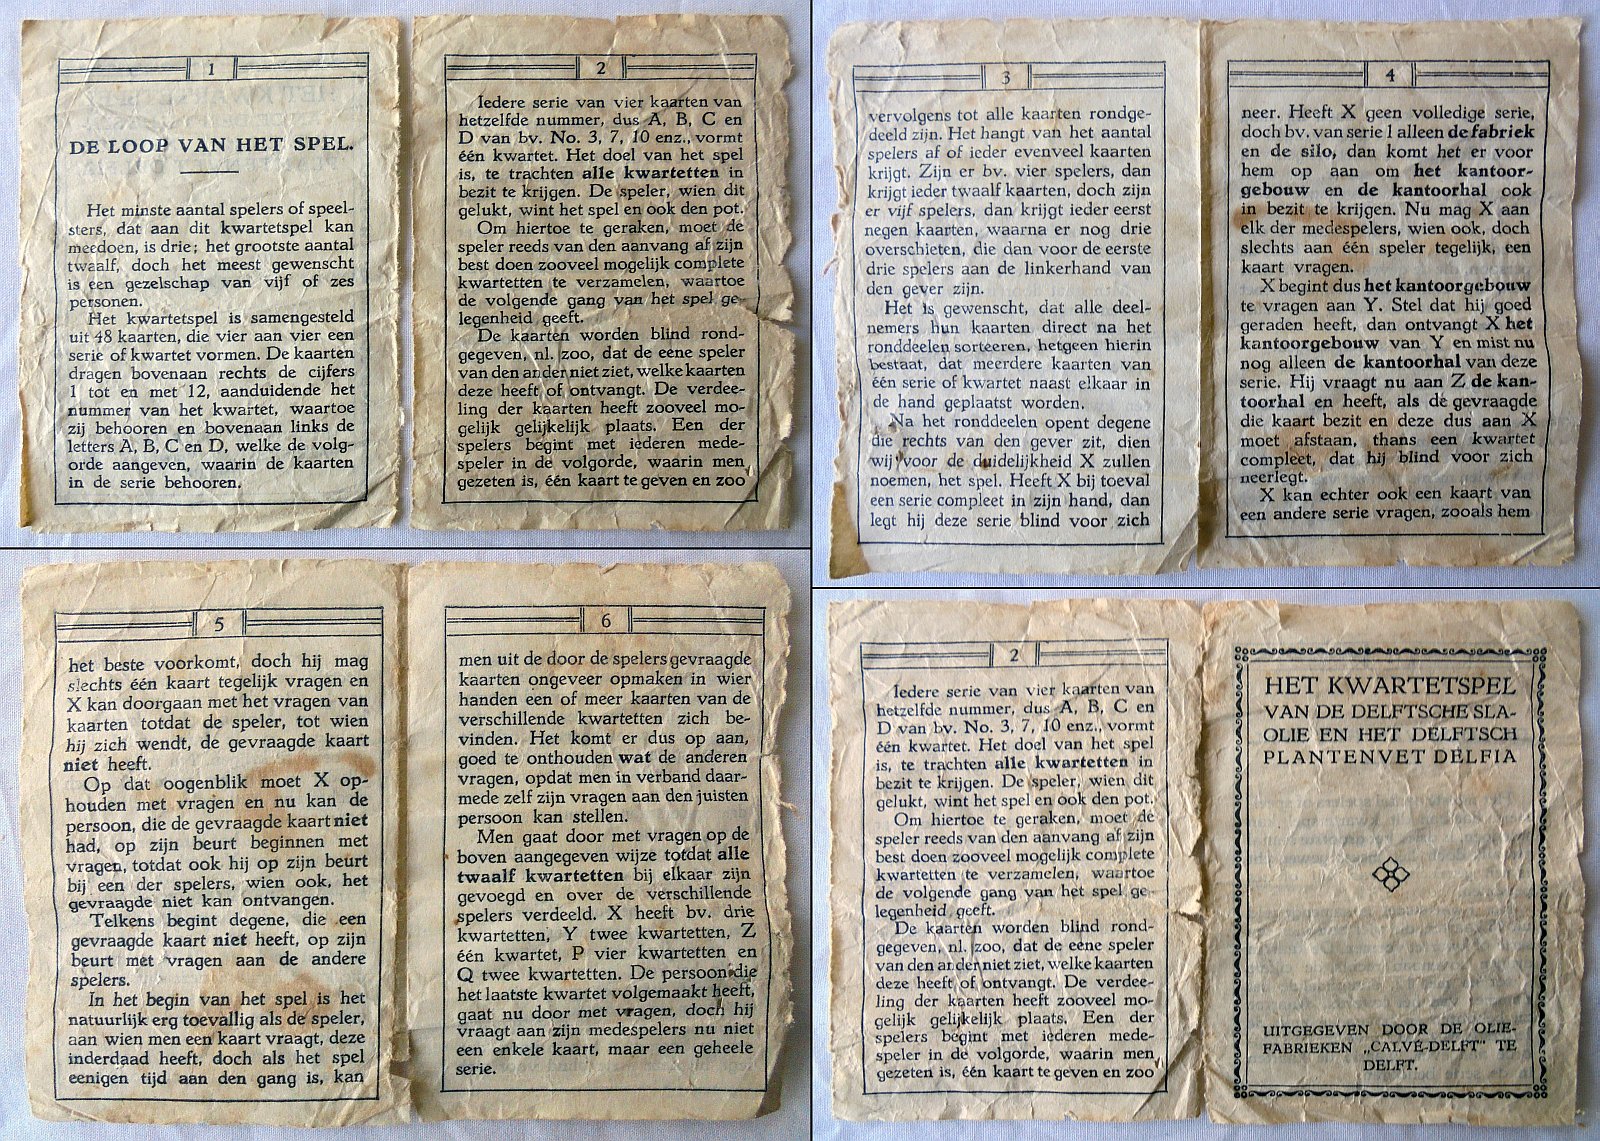 1
DE LOOP VAN HET SPEL.
Het minste aantal spelers of speel-
sters, dat aan dit kwartetspel kan
meedoen, is drie; het grootste aantal
twaalf, doch het meest gewenscht
is een gezelschap van vijf of zes
personen.
Het kwartetspel is samengesteld
uit 48 kaarten, die vier aan vier een
serie of kwartet vormen. De kaarten
dragen bovenaan rechts de cijfers
1 tot en met 12, aanduidende het
nummer van het kwartet, waartoe
zij behooren en bovenaan links de
letters A, B, C en D, welke de volg-
orde aangeven, waarin de kaarten
in de serie behooren.
2
Iedere serie van vier kaarten van
hetzelfde nummer, dus A, B, C en
D van bv. No. 3, 7, 10 enz., vormt
één kwartet. Het doel van het spel
is, te trachten alle kwartetten in
bezit te krijgen. De speler, wien dit
gelukt, wint het spel en ook den pot.
Om hiertoe te geraken, moet de
speler reeds van den aanvang af zijn
best doen zooveel mogelijk complete
kwartetten te verzamelen, waartoe
de volgende gang van het spel ge-
legenheid geeft.
De kaarten worden blind rond-
gegeven, nl. zoo, dat de eene speler
van den ander niet ziet, welke kaarten
deze heeft of ontvangt. De verdee-
ling der kaarten heeft zooveel mo-
gelijk gelijkelijk plaats. Een der
spelers begint met iederen mede-
speler in de volgorde, waarin men
gezeten is, één kaart te geven en zoo
3
vervolgens tot alle kaarten rondge-
deeld zijn. Het hangt van het aantal
spelers af of ieder evenveel kaarten
krijgt. Zijn er bv. vier spelers, dan
krijgt ieder twaalf kaarten, doch zijn
er vijf spelers, dan krijgt ieder eerst
negen kaarten, waarna er nog drie
overschieten, die dan voor de eerste
drie spelers aan de linkerhand van
den gever zijn.
Het is gewenscht, dat alle deel-
nemers hun kaarten direct na het
ronddeelen sorteeren, hetgeen hierin
bestaat, dat meerdere kaarten van
één serie of kwartet naast elkaar in
de hand geplaatst worden.
Na het ronddeelen opent degene
die rechts van den gever zit, dien
wij voor de duidelijkheid X zullen
noemen, het spel. Heeft X bij toeval
een serie compleet in zijn hand, dan
legt hij deze serie blind voor zich
4
neer. Heeft X geen volledige serie,
doch bv. van serie 1 alleen de fabriek
en de silo, dan komt het er voor
hem op aan om het kantoor-
gebouw en de kantoorhal ook
in bezit te krijgen. Nu mag X aan
elk der medespelers, wien ook, doch
slechts aan één speler tegelijk, een
kaart vragen.
X begint dus het kantoorgebouw
te vragen aan Y. Stel dat hij goed
geraden heeft, dan ontvangt X het
kantoorgebouw van Y en mist nu
nog alleen de kantoorhal van deze
serie. Hij vraagt nu aan Z de kan-
toorhal en heeft, als de gevraagde
die kaart bezit en deze dus aan X
moet afstaan, thans een kwartet
compleet, dat hij blind voor zich
neerlegt.
X kan echter ook een kaart van
een andere serie vragen, zooals hem
5
het beste voorkomt, doch hij mag
slechts één kaart tegelijk vragen en
X kan doorgaan met het vragen van
kaarten totdat de speler, tot wien
hij zich wendt, de gevraagde kaart
niet heeft.
Op dat oogenblik moet X op-
houden met vragen en nu kan de
persoon, die de gevraagde kaart niet
had, op zijn beurt beginnen met
vragen, totdat ook hij op zijn beurt
bij een der spelers, wien ook, het
gevraagde niet kan ontvangen.
Telkens begint degene, die een
gevraagde kaart niet heeft, op zijn
beurt met vragen aan de andere
spelers.
In het begin van het spel is het
natuurlijk erg toevallig als de speler,
aan wien men een kaart vraagt, deze
inderdaad heeft, doch als het spel
eenigen tijd aan den gang is, kan
6
men uit de door de spelers gevraagde
kaarten ongeveer opmaken in wier
handen een of meer kaarten van de
verschillende kwartetten zich be-
vinden. Het komt er dus op aan,
goed te onthouden wat de anderen
vragen, opdat men in verband daar-
mede zelf zijn vragen aan den juisten
persoon kan stellen.
Men gaat door met vragen op de
boven aangegeven wijze totdat alle
twaalf kwartetten bij elkaar zijn
gevoegd en over de verschillende
spelers verdeeld. X heeft bv. drie
kwartetten, Y twee kwartetten, Z
één kwartet, P vier kwartetten en
Q twee kwartetten. De persoon die
het laatste kwartet volgemaakt heeft,
gaat nu door met vragen, doch hij
vraagt aan zijn medespelers nu niet
een enkele kaart, maar een geheele
serie.
2
Iedere serie van vier kaarten van
hetzelfde nummer, dus A, B, C en
D van bv. No. 3, 7, 10 enz., vormt
één kwartet. Het doel van het spel
is, te trachten alle kwartetten in
bezit te krijgen. De speler, wien dit
gelukt, wint het spel en ook den pot.
Om hiertoe te geraken, moet de
speler reeds van den aanvang af zijn
best doen zooveel mogelijk complete
kwartetten te verzamelen, waartoe
de volgende gang van het spel ge-
legenheid geeft.
De kaarten worden blind rond-
gegeven, nl. zoo, dat de eene speler
van den ander niet ziet, welke kaarten
deze heeft of ontvangt. De verdee-
ling der kaarten heeft zooveel mo-
gelijk gelijkelijk plaats. Een der
spelers begint met iederen mede-
speler in de volgorde, waarin men
gezeten is, één kaart te geven en zoo
HET KWARTETSPEL
VAN DE DELFTSCHE SLA-
OLIE EN HET DELFTSCH
PLANTENVET DELFIA
UITGEGEVEN DOOR DE OLIE-
FABRIEKEN „CALVÉ-DELFT" TE
DELFT.